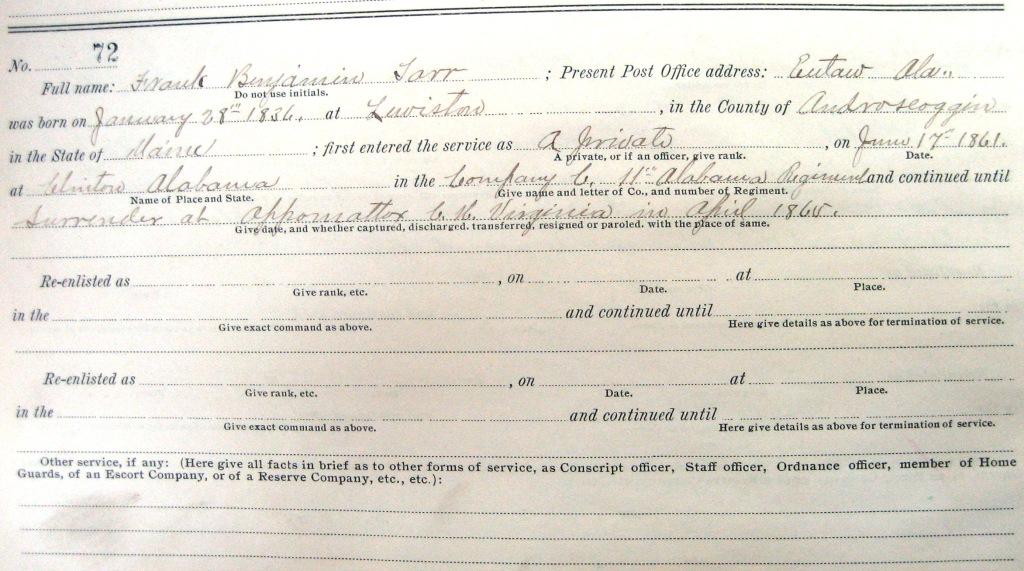 No. 72
Full name: Frank Benjamin Tarr ; Present Post Office address: Eutaw Ala..
Do not use initials.
was born on January 28th 1836. at Lewiston , in the County of Androscoggin
in the State of Maine ; first entered the service as A Private , on June 17th 1861.
A private, or if an officer, give rank. Date.
at Clinton Alabama in the Company C, 11th Alabama Regiment and continued until
Name of Place and State. Give name and letter of Co., and number of Regiment.
Surrender at Appomattox C. H. Virginia in April 1865.
Give date, and whether captured, discharged. transferred, resigned or paroled. with the place of same.
Re-enlisted as , on at
Give rank, etc. Date. Place.
in the and continued until
Give exact command as above. Here give details as above for termination of service.
Re-enlisted as , on at
Give rank, etc. Date. Place.
in the and continued until
Give exact command as above. Here give details as above for termination of service.
Other service, if any: (Here give all facts in brief as to other forms of service, as Conscript officer, Staff officer, Ordnance officer, member of Home
Guards, of an Escort Company, or of a Reserve Company, etc., etc.):